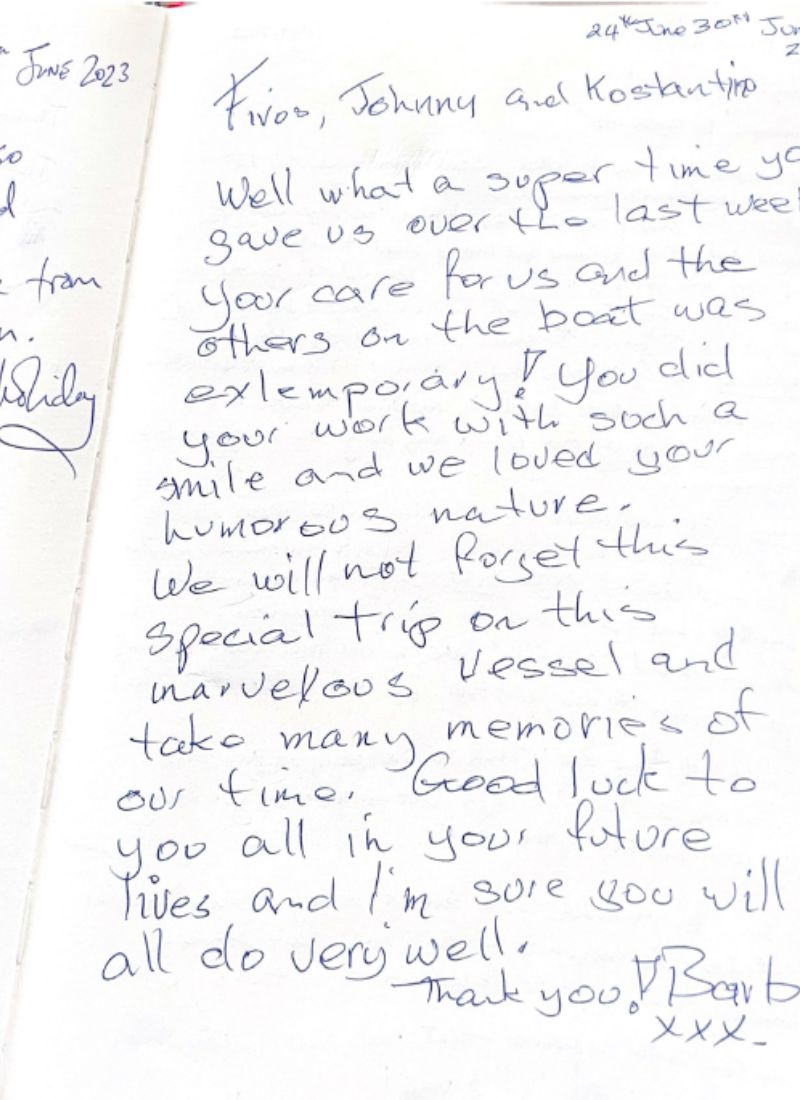 June 2023
so
d
from
n.
holiday
24th June 30th Jun
2
Fivos, Johnny and Kostantino
Well what a super time yo
gave us over the last week
your care for us and the
others on the boat was
exlemporary! You did
your work with such a
smile and we loved your
humorous nature.
We will not forget this
special trip on this
marvellous vessel and
take many memories of
our time. Good luck to
you all in your future
lives and I'm sure you will
all do very well.
Thank you! Barb
xxx-